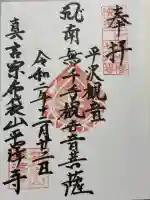 奉拝
平沢観音
南無千手観世音菩薩
令和二年十二月廿三日
真言宗布袋山平澤寺